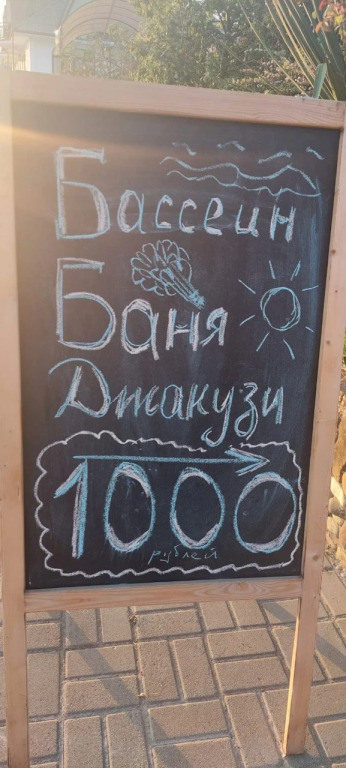 Бассеин
Баня
Джакузи
1000
рублей